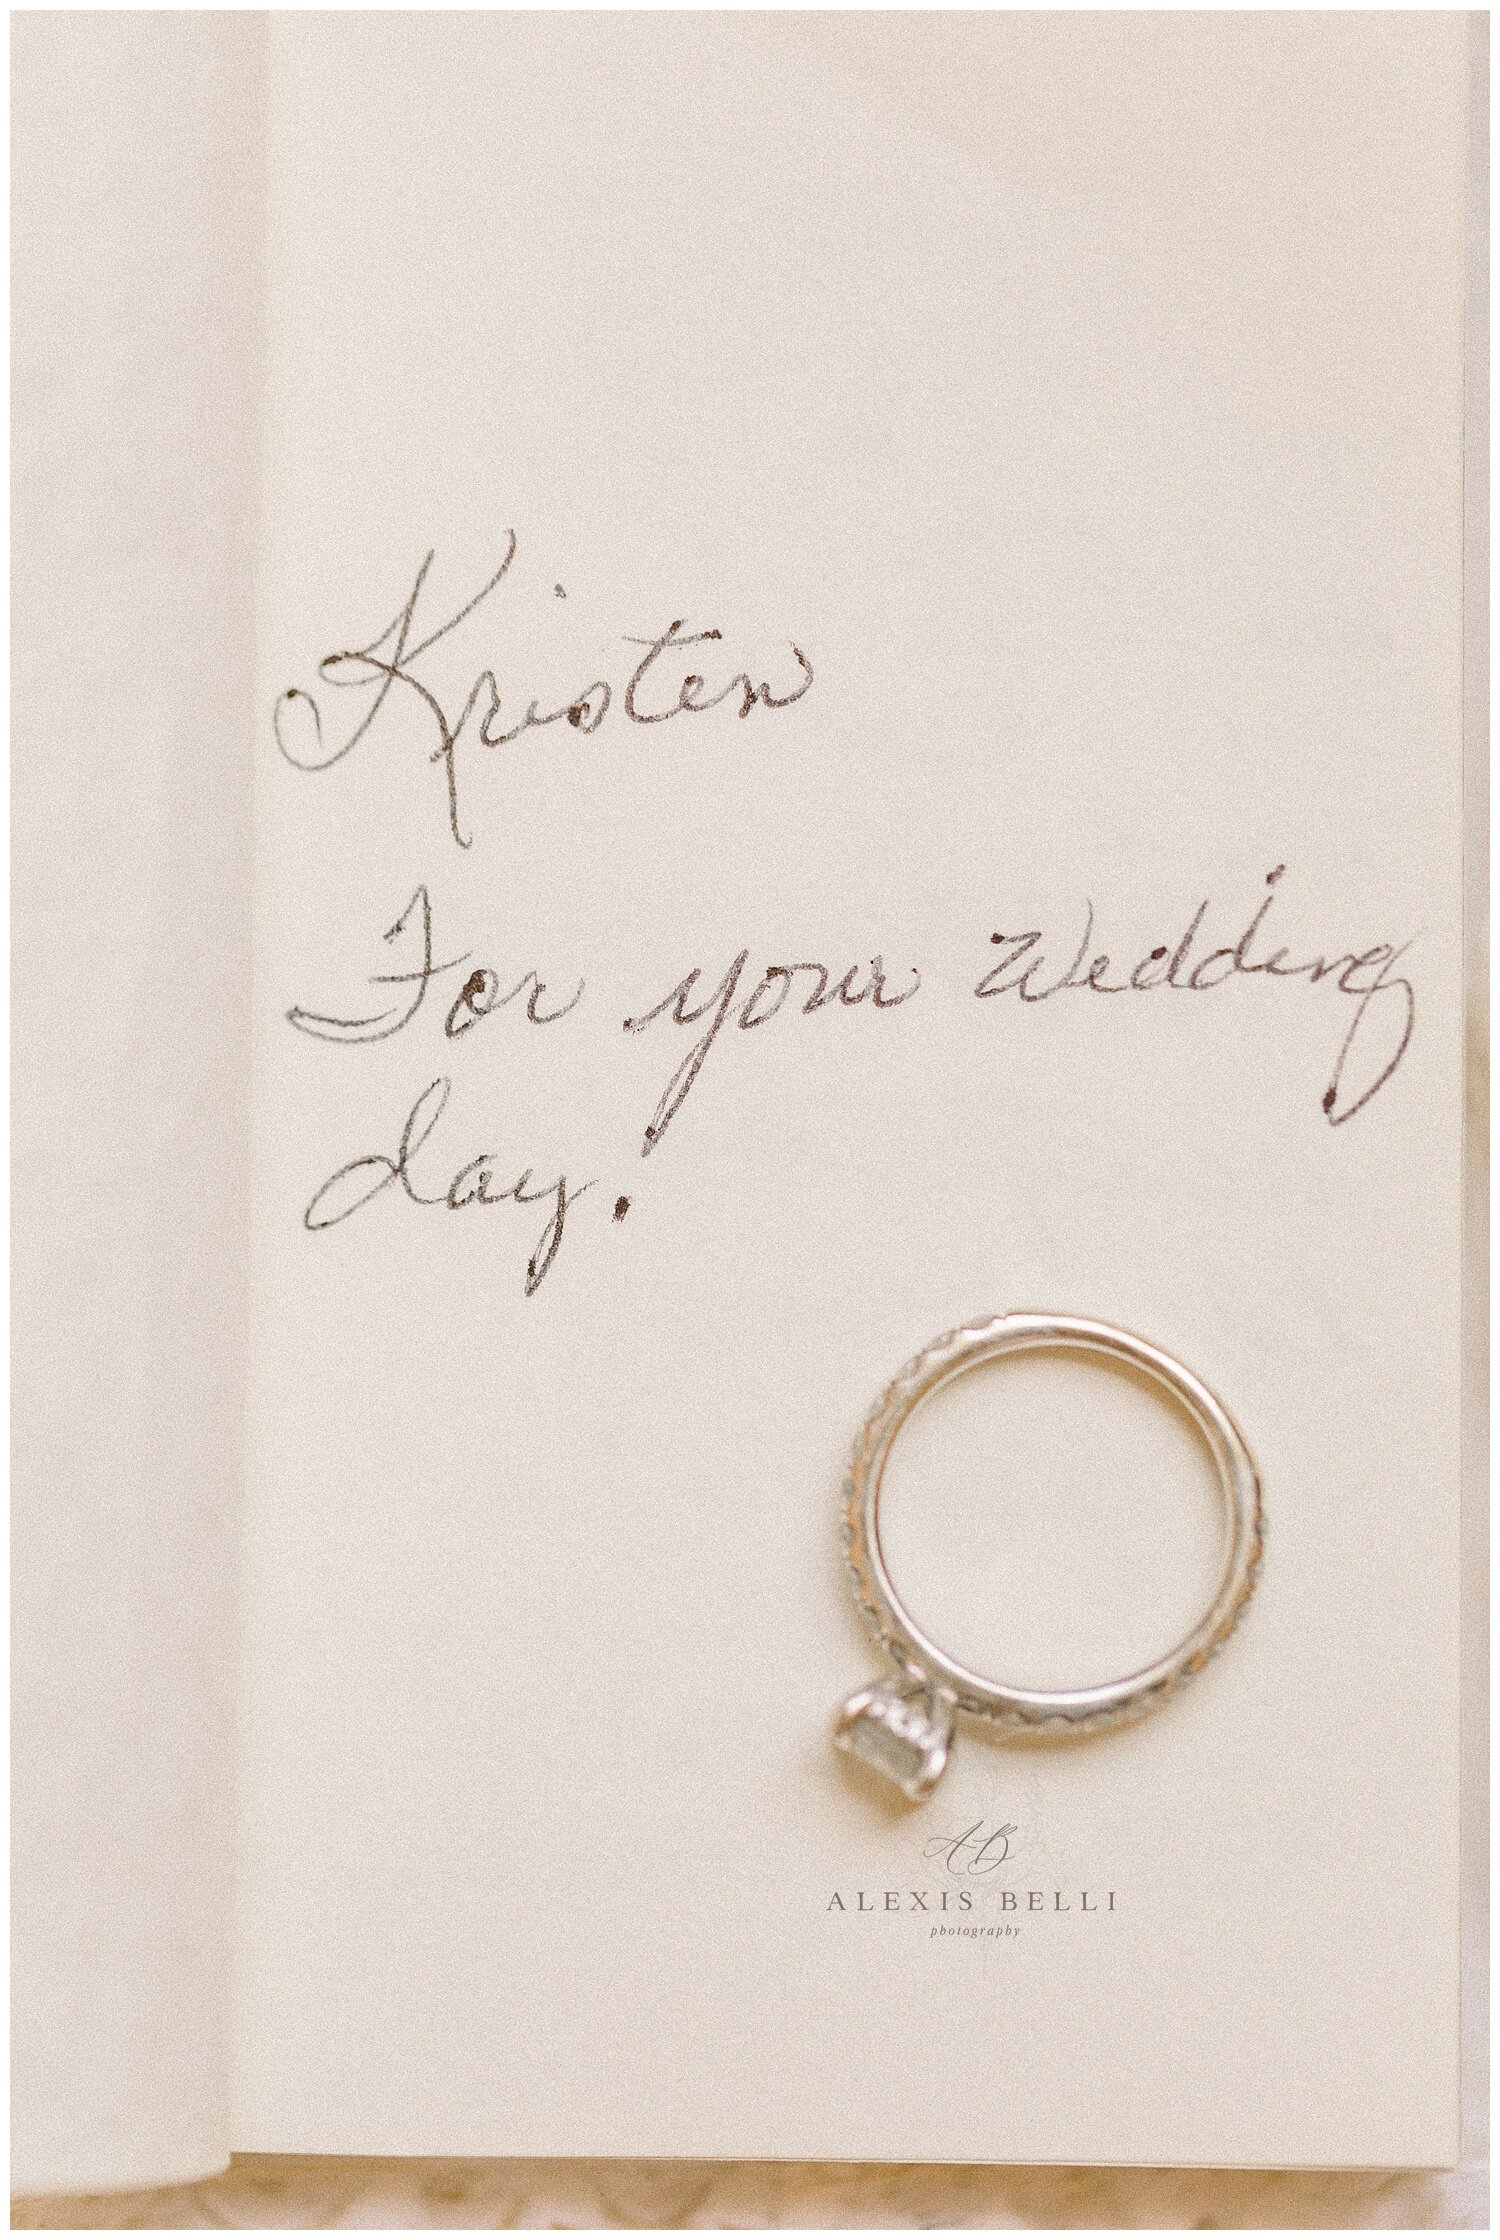 Kristen
For your Wedding
day.
AB
ALEXIS BELLI
photography